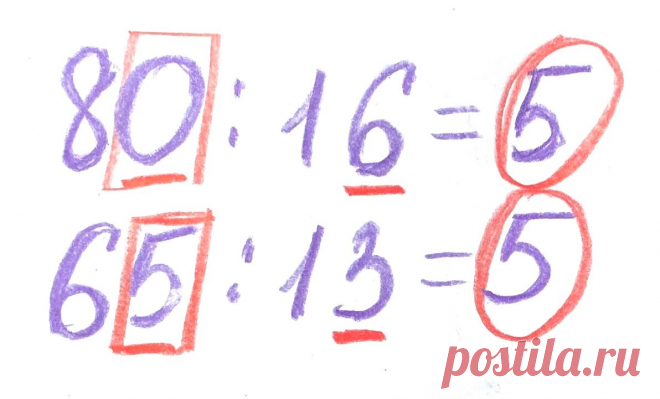 80 : 16 = 5
65 : 13 = 5
postila.ru